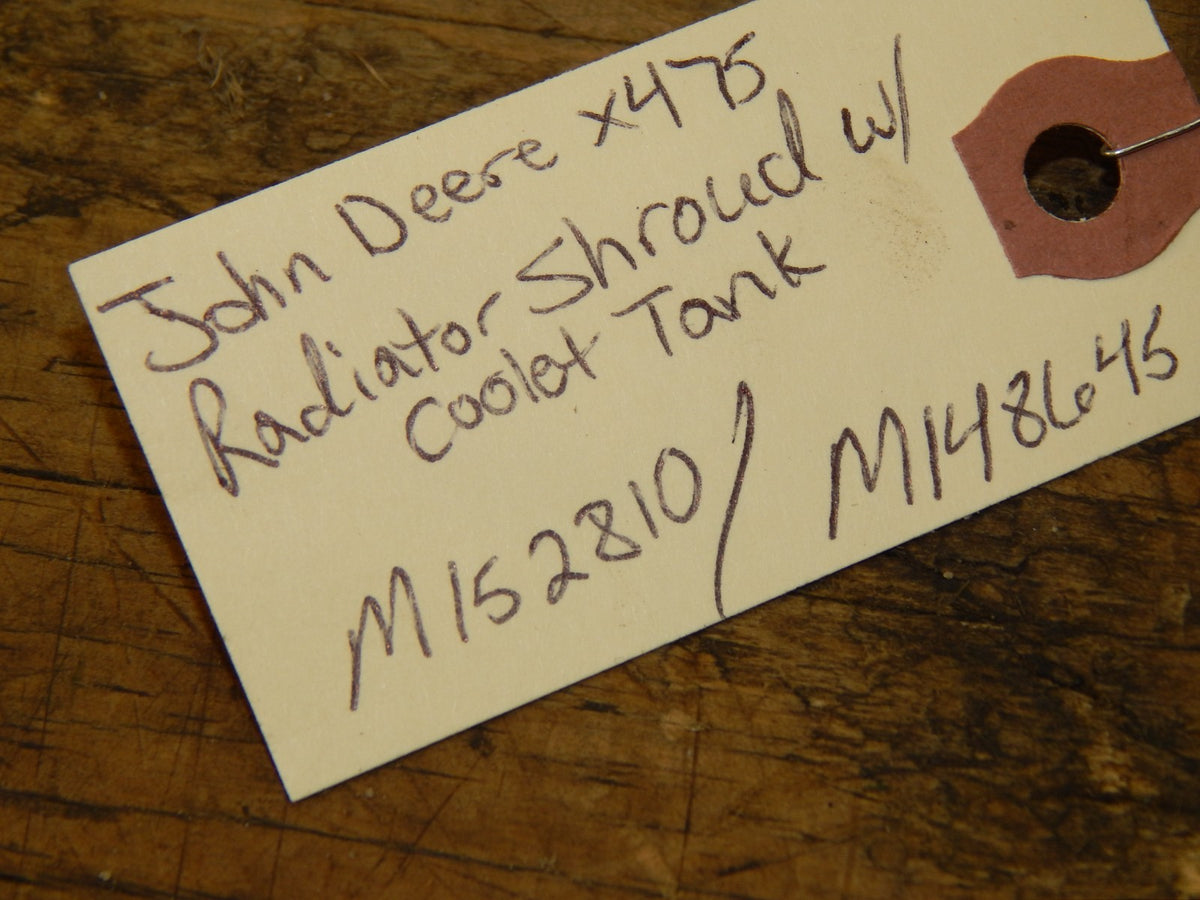 John Deere x475
Radiator Shroud w/
Coolat Tank
M152810/ M148645